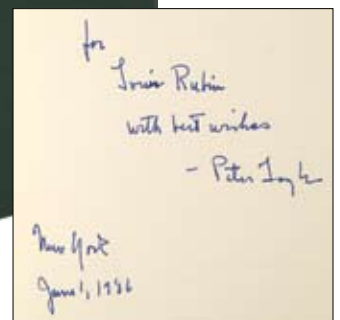 for
Louis Rubin
with best wishes
– Peter Taylor
New York
June 1, 1986